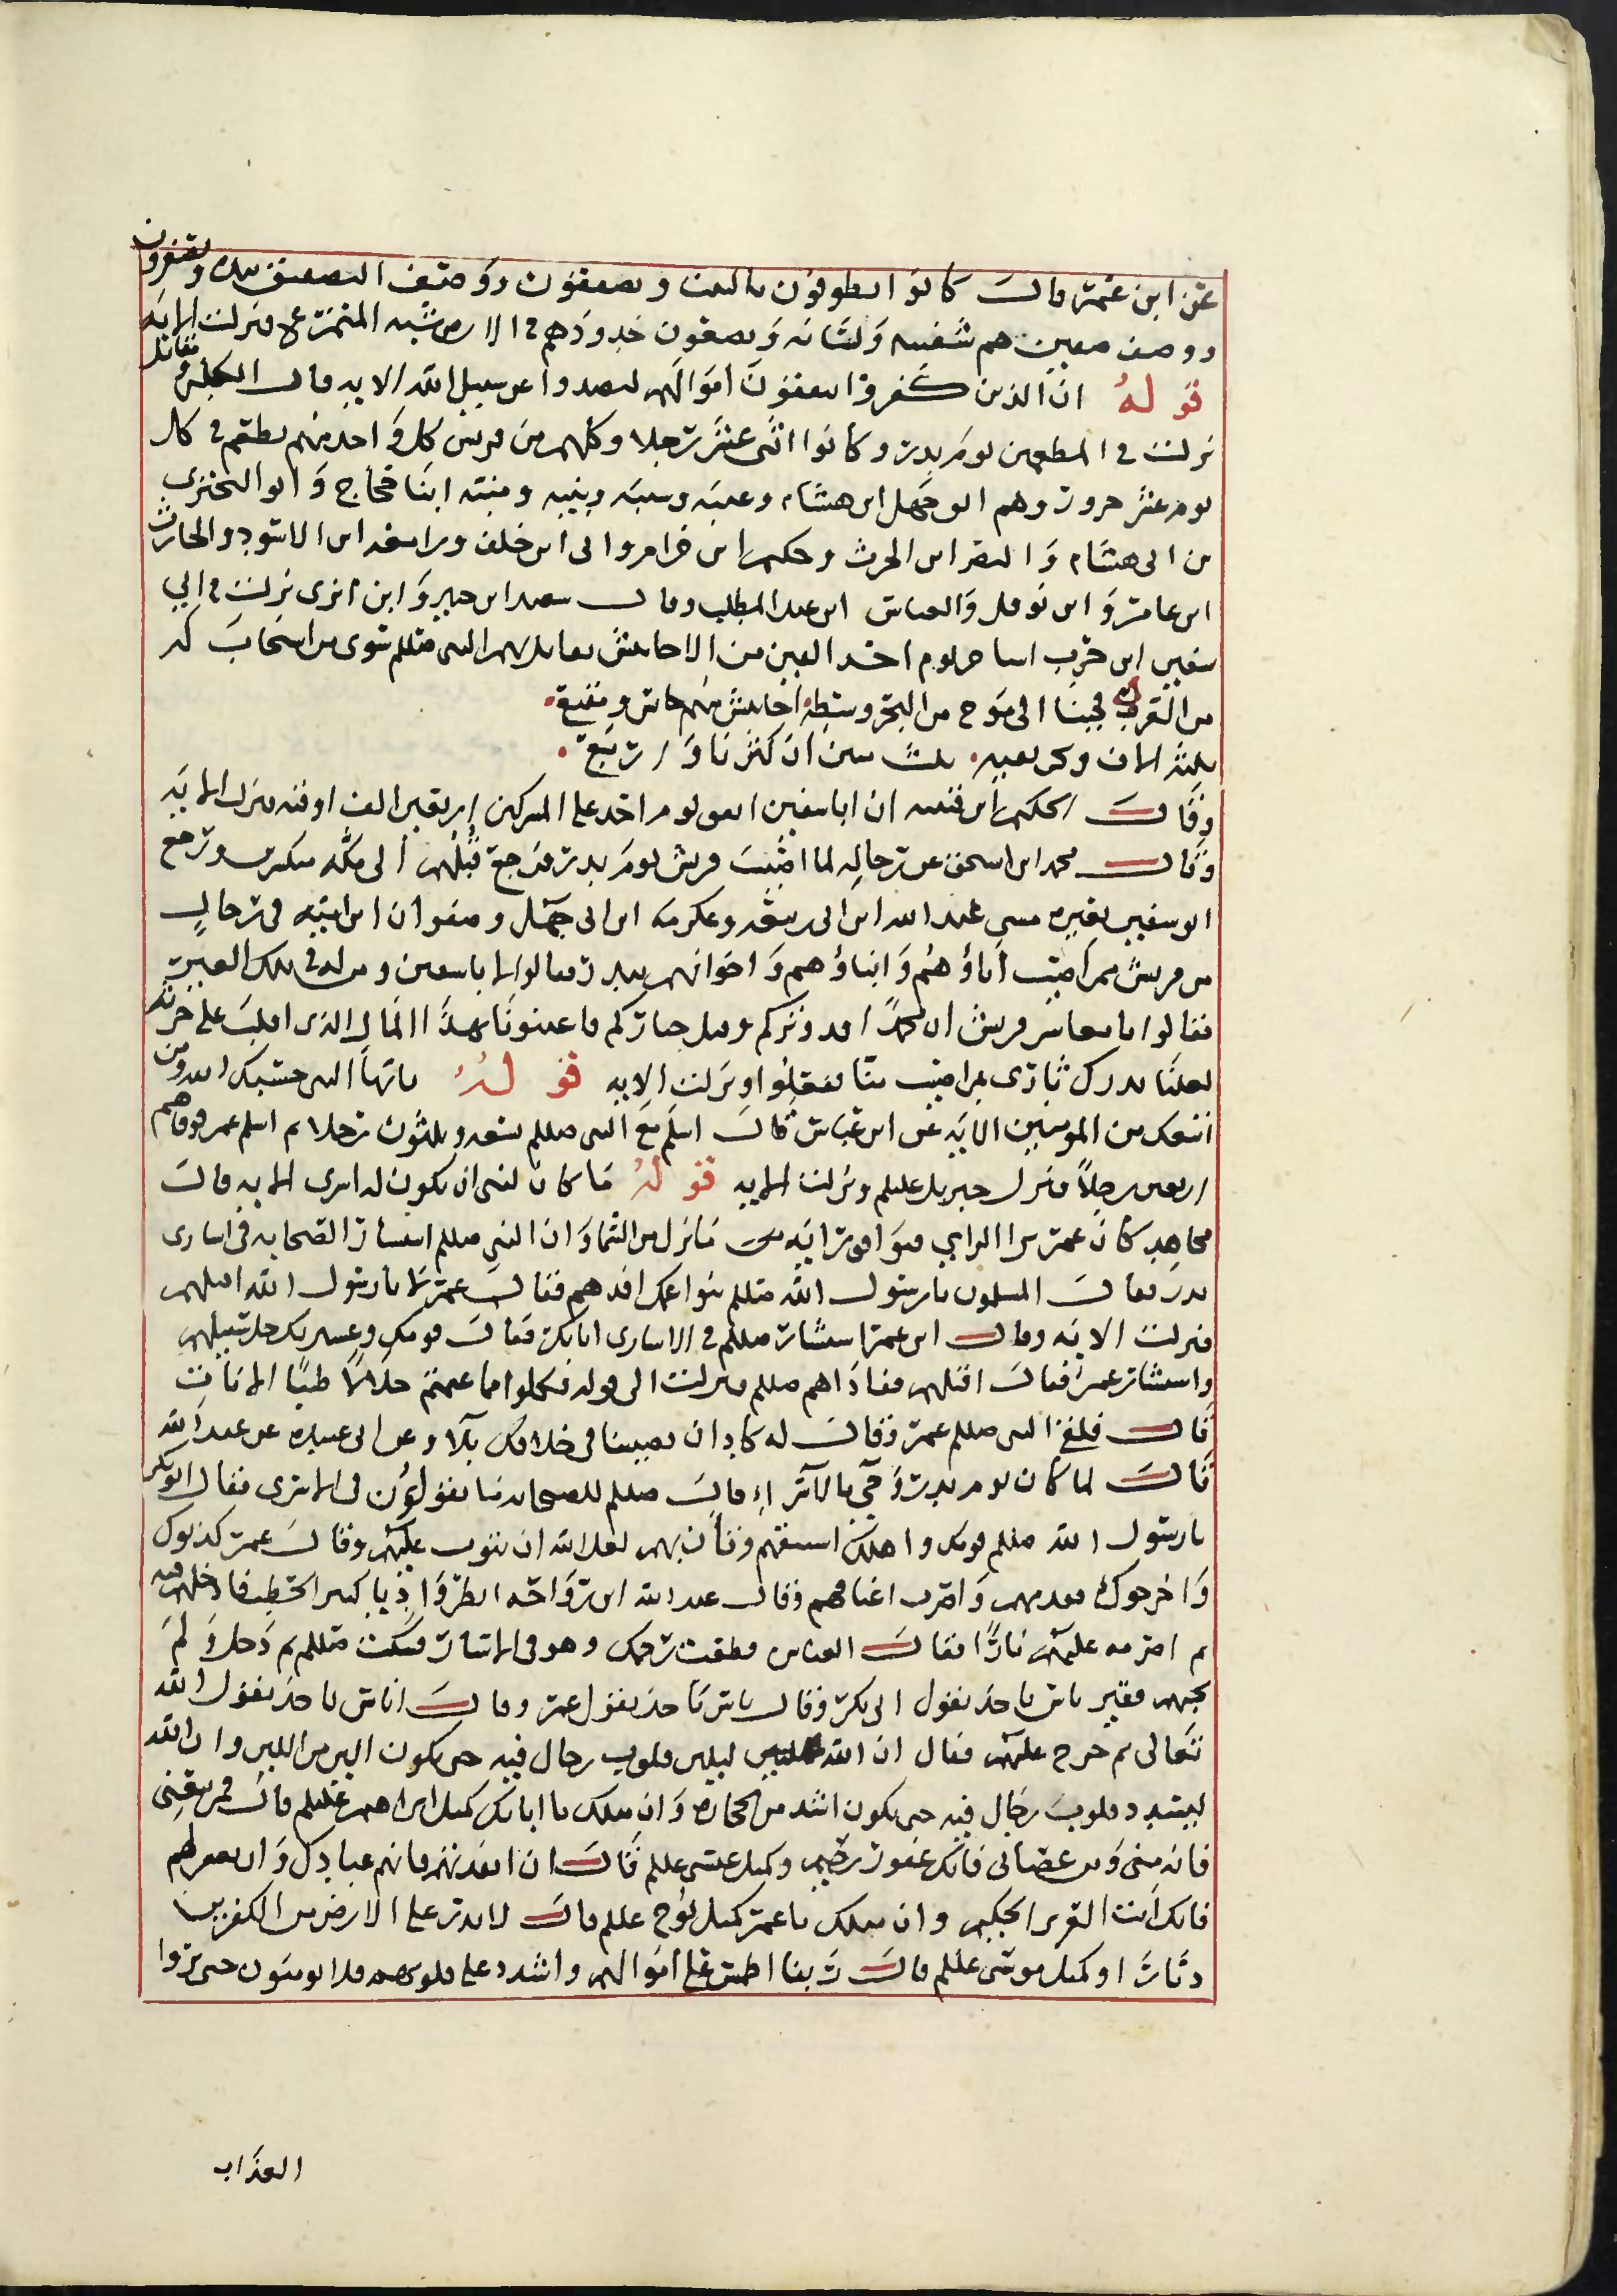 عن ابن عمر قال كانوا يطوفون بالبيت ويصفقون ووصف التصفيق بيده ويصفرون
ووصف صفيرهم شفتيه ولسانه ويضعون خدودهم في الارض فنزلت الاية
قوله ان الذين كفروا ينفقون اموالهم ليصدوا عن سبيل الله الاية قال الكلبي ومقاتل
نزلت في المطعمين يوم بدر وكانوا اثنى عشر رجلا وكلهم من قريش كل واحد منهم يطعم في كل
يوم عشر جزور وهم ابو جهل ابن هشام وعتبه وشيبه ونبيه ومنبه ابنا حجاج وابو البختري
بن ابى هشام والنضر ابن الحرث وحكيم ابن حزام وابى ابن خلف وزمعه ابن الاسود والحارث
ابن عامر وابن نوفل والعباس ابن عبد المطلب وقال سعيد ابن جبير وابن ابزى نزلت في ابي
سفين ابن حرب استاجر يوم احد الفين من الاحابيش يقاتل بهم النبي صللم سوى من استجاب له
من العرب فجينا الى موج من البحر وسطه احابيش منهم حاسر ومقنع
ثلثة الاف ونحن بقيه ثلث مين ان كثرنا واربع
وقال الحكم ابن عتيبه ان ابا سفين انفق يوم احد على المشركين اربعين الف اوقيه فنزلت الايه
وقال محمد ابن اسحق عن رجاله لما اصيبت قريش يوم بدر فرجع فلهم الى مكه ورجع
ابو سفين بعيره مشى عبد الله ابن ابى ربيعه وعكرمه ابن ابى جهل وصفوان ابن اميه في رجال
من قريش ممن اصيب اباؤهم وابناؤهم واخوانهم ببدر فكلموا ابا سفين ومن له في تلك العير
فقالوا يا معاشر قريش ان محمدا قد وتركم وقتل خياركم فاعينونا بهذا المال الذى افلت على حربه
لعلنا ندرك ثارى بمن اصيب منا ففعلوا ونزلت الايه قوله يايها النبي حسبك الله ومن
اتبعك من المومنين الايه عن ابن عباس قال اسلم مع النبي صللم تسعه وثلثون رجلا ثم اسلم عمر فوفاهم
اربعين رجلا فنزل جبريل عليلم ونزلت الايه قوله ما كان لنبى ان يكون له اسرى الايه قال
مجاهد كان عمر يرا الراى فيوافق رايه ما نزل من السما وان النبي صللم استشار الصحابه في اسارى
بدر فقال المسلمون يا رسول الله صللم بنوا عمك افدهم فقال عمر لا يا رسول الله اقتلهم
فنزلت الايه وقال ابن عمر استشار صللم في الاسارى ابا بكر فقال قومك وعشيرتك خل سبيلهم
واستشار عمر فقال اقتلهم ففاداهم صللم فنزلت الى قوله فكلوا مما غنمتم حلالا طيبا الايات
قال فلقى النبي صللم عمر وقال له كاد ان يصيبنا في خلافك بلا وعن ابى عبيده عن عبد الله
قال لما كان يوم بدر وجي بالاسرا قال صللم للصحابه ما تقولون في الاسرى فقال ابو بكر
يا رسول الله صللم قومك واهلك استبقهم وتان بهم لعل الله ان يتوب عليهم وقال عمر كذبوك
واخرجوك فقدمهم واضرب اعناقهم وقال عبد الله ابن رواحه انظر واديا كثير الحطب فادخلهم فيه
ثم اضرمه عليهم نارا فقال العباس قطعت رحمك وهو في الاسار فسكت صللم ثم دخل ولم
يجبهم فقيل ناس ياخذ بقول ابى بكر وقال ناس ياخذ بقول عمر وقال اناس ياخذ بقول عبد الله
ثم خرج عليهم فقال ان الله ليلين قلوب رجال فيه حتى يكون الين من اللبن وان الله
ليشدد قلوب رجال فيه حتى يكون اشد من الحجاره وان مثلك يا ابا بكر كمثل ابراهيم عليلم قال فمن تبعنى
فانه منى ومن عصانى فانك غفور رحيم وكمثل عيسى عليلم قال ان تعذبهم فانهم عبادك وان تغفر لهم
فانك انت العزيز الحكيم وان مثلك يا عمر كمثل نوح عليلم قال لا تذر على الارض من الكفرين
ديارا وكمثل موسى عليلم قال ربنا اطمس على اموالهم واشدد على قلوبهم فلا يومنون حتى يروا
العذاب